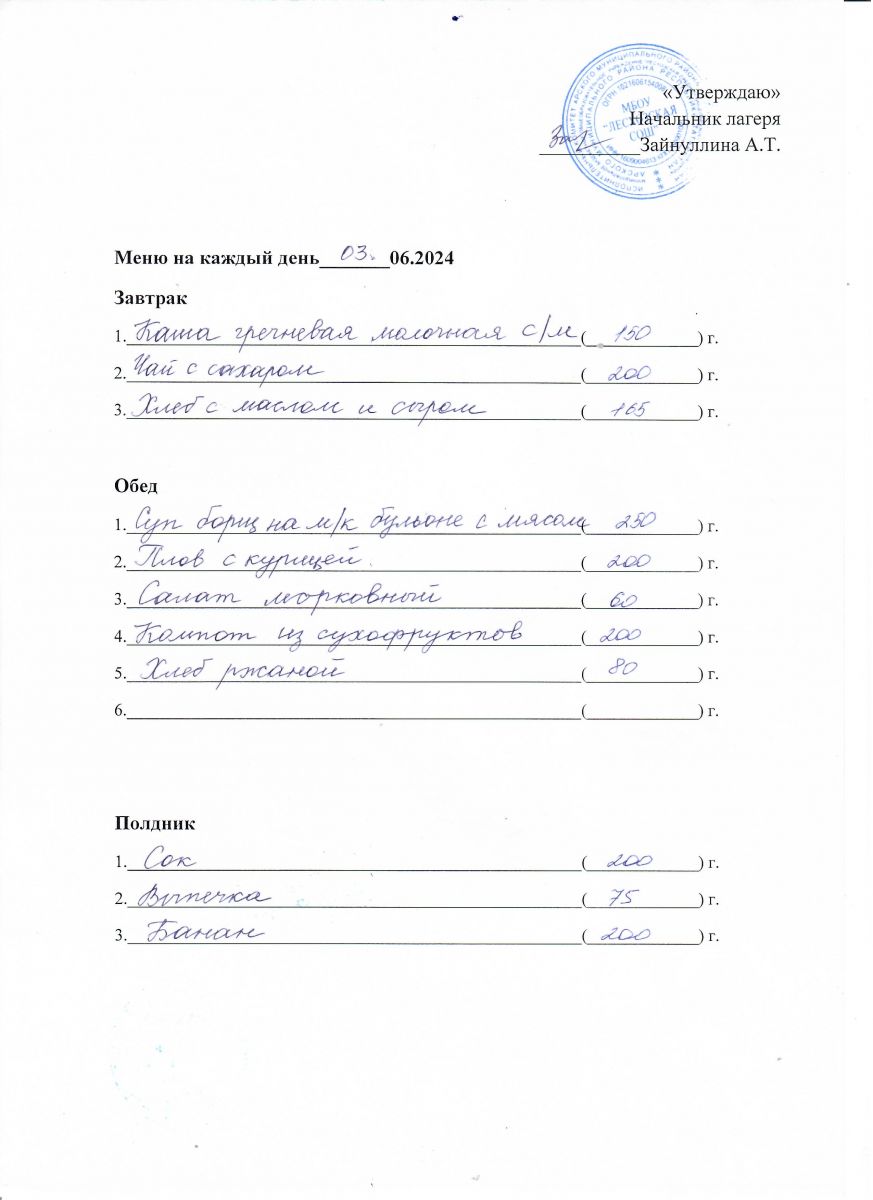 «Утверждаю»
Начальник лагеря
Зайнуллина А.Т.
МБОУ
"ЛЕСХОЗСКАЯ
СОШ"
Меню на каждый день 03. 06.2024
Завтрак
1. Каша гречневая молочная с/м ( 150 ) г.
2. Чай с сахаром ( 200 ) г.
3. Хлеб с маслом и сыром ( 165 ) г.
Обед
1. Суп борщ на м/к бульоне с мясом ( 250 ) г.
2. Плов с курицей. ( 200 ) г.
3. Салат морковный ( 60 ) г.
4. Компот из сухофруктов ( 200 ) г.
5. Хлеб ржаной ( 80 ) г.
6. ( ) г.
Полдник
1. Сок ( 200 ) г.
2. Выпечка ( 75 ) г.
3. Банан ( 200 ) г.